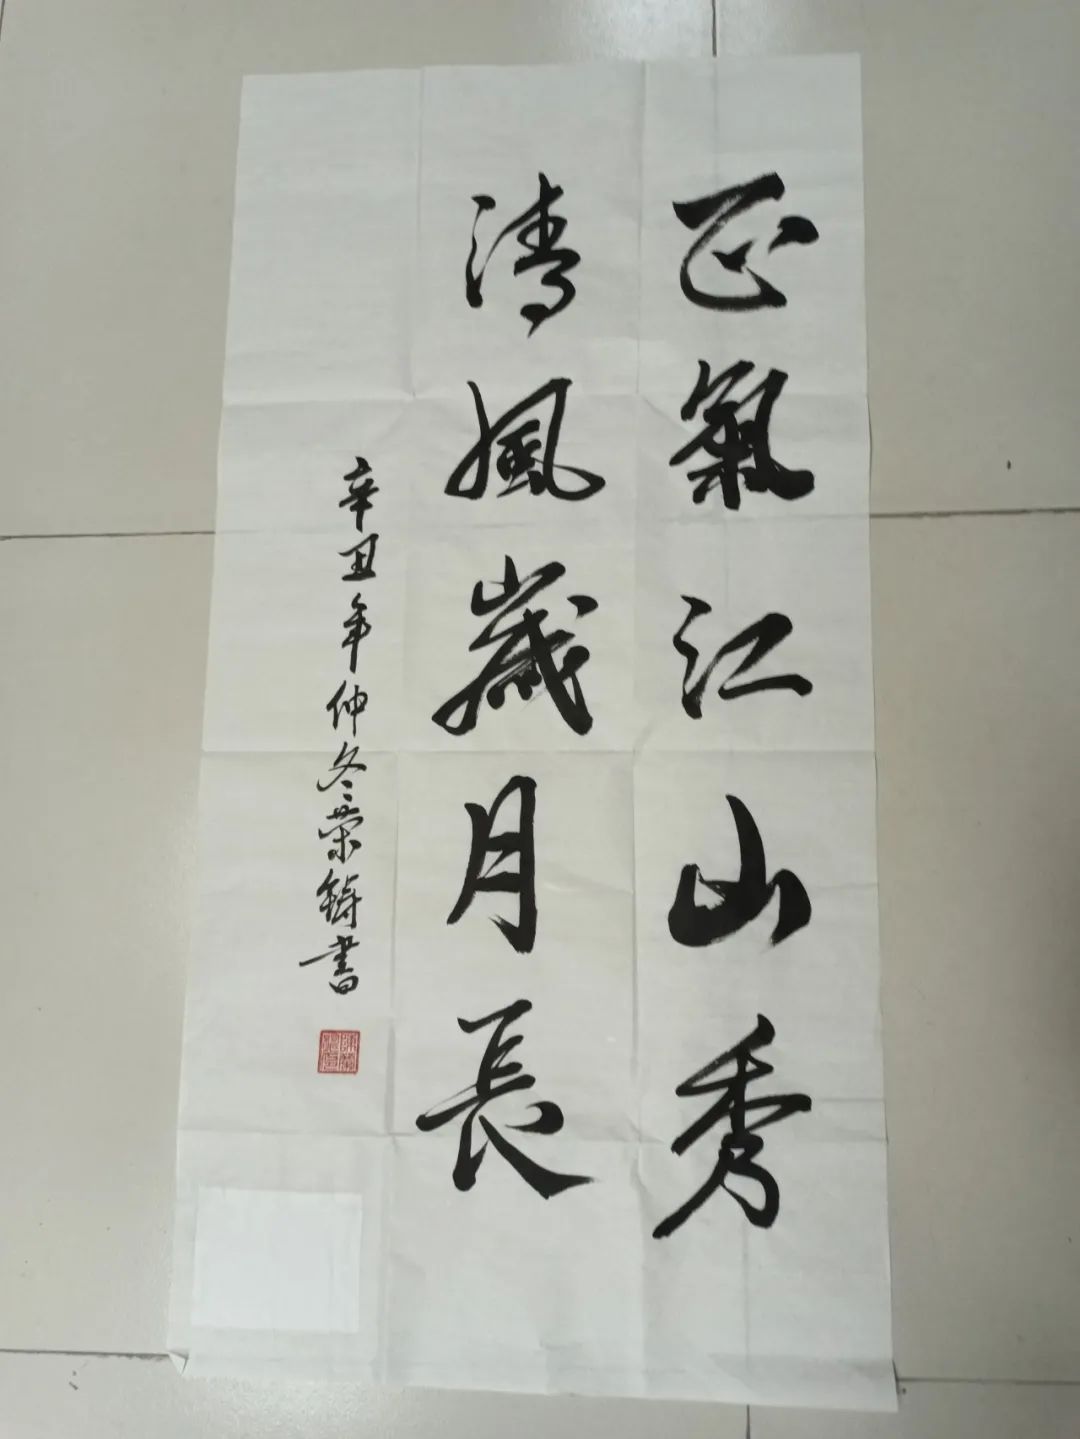 正氣江山秀
清風歲月長
辛丑年仲冬荣鑄書